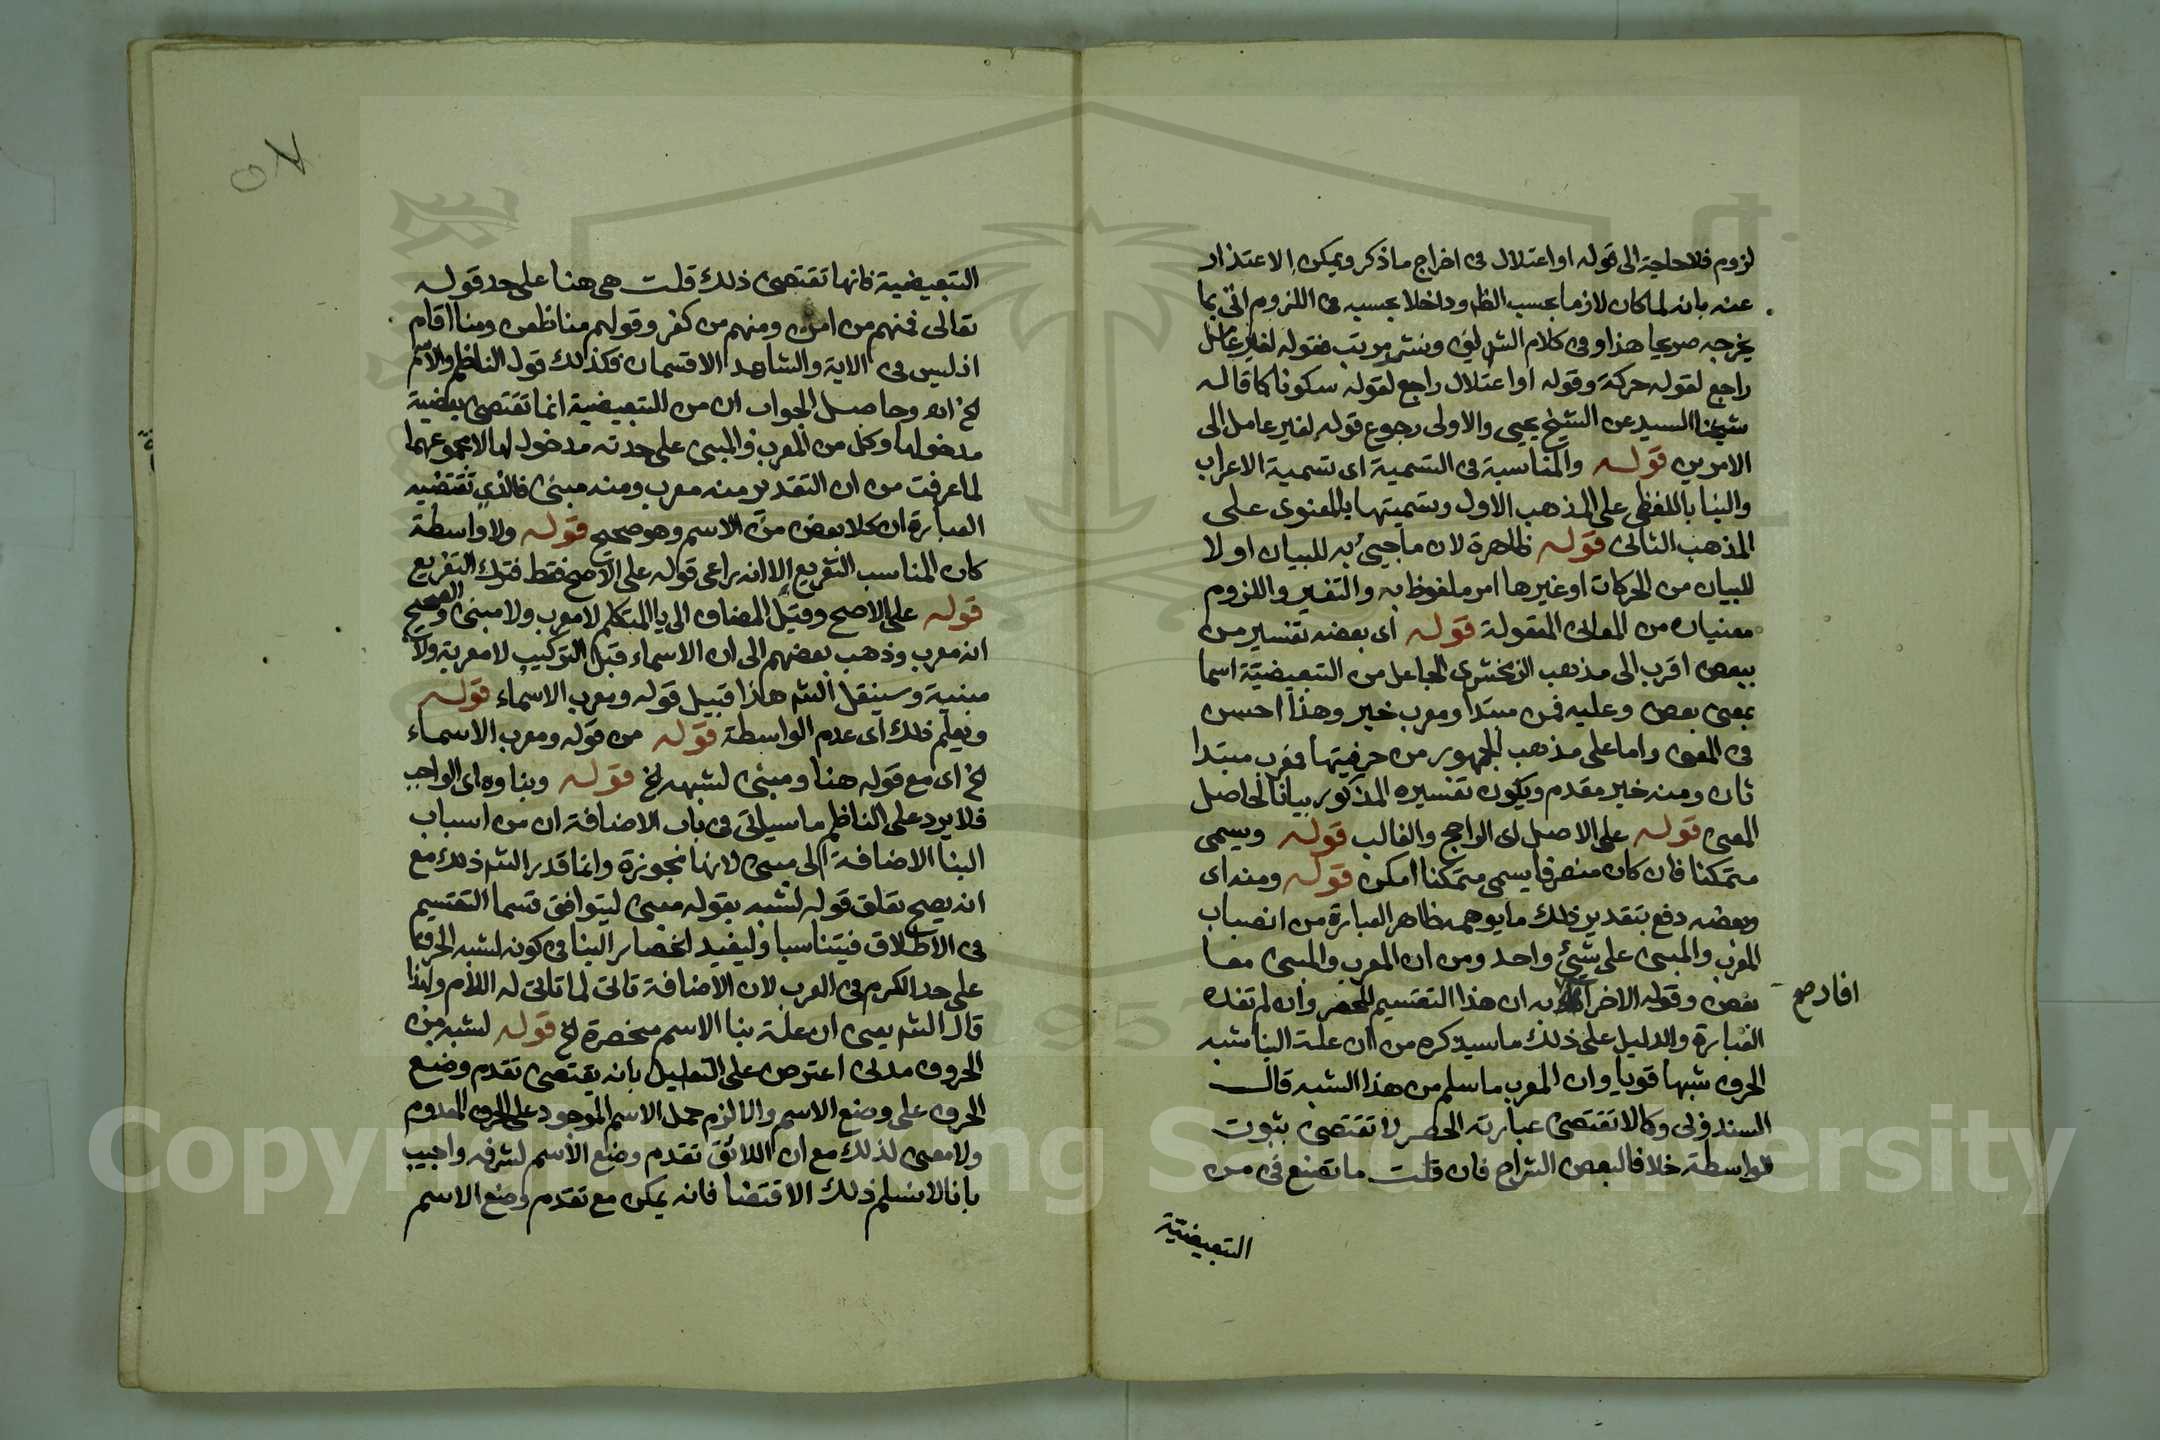 لزوم فلا حاجة الى قوله او اعتلال فى اخراج ما ذكر ويمكن الاعتذار
عنه بانه لما كان لازما بحسب الظ وداخلا بحسبه فى اللزوم اتى بما
يخرجه صريحا هذا وفى كلام الش لف ونشر مرتب فقوله لغير عامل
راجع لقوله حركة وقوله او اعتلال راجع لقوله سكونا كما قاله
شيخنا السيد عن الشيخ يحيى والاولى رجوع قوله لغير عامل الى
الامرين قوله والمناسبة فى التسمية اى تسمية الاعراب
والبنا باللفظى على المذهب الاول وتسميتها بالمعنوى على
المذهب الثانى قوله ظاهرة لان ما جيئ به للبيان او لا
للبيان من الحركات او غيرها امر ملفوظ به والتغير واللزوم
معنيان من المعانى المعقولة قوله اى بعضه تفسير من
ببعض اقرب الى مذهب الزمخشرى الجاعل من التبعيضية اسما
بمعنى بعض وعليه فمن مبتدا ومعرب خبر وهذا احسن
فى المعنى واما على مذهب الجمهور من حرفيتها فمعرب مبتدا
ثان ومنه خبر مقدم ويكون تفسيره المذكور بيانا لحاصل
المعنى قوله على الاصل اى الراجح والغالب قوله ويسمى
متمكنا فان كان منصرفا يسمى متمكنا امكن قوله ومنه اى
وبعضه دفع بتقدير ذلك ما يوهمه ظاهر العبارة من انصباب
المعرب والمبنى على شئ واحد ومن ان المعرب والمبنى معا
بعض وقوله الاخر به ان هذا التقسيم للحصر وان لم تفده
افاد صح
العبارة والدليل على ذلك ما سيذكره من ان علة البنا شبه
الحرف شبها قويا وان المعرب ما سلم من هذا الشبه قال
السندوبى وكما لا تقتضى عبارته الحصر لا تقتضى بثبوت
الواسطة خلافا لبعض الشراح فان قلت ما تصنع فى من
التبعيضية
التبعيضية فانها تقتضى ذلك قلت هى هنا على حد قوله
تعالى فمنهم من امن ومنهم من كفر وقولهم منا ظعن ومنا اقام
اذ ليس فى الاية والشاهد الا قسمان فكذلك قول الناظم والاسم
لخ اه وحاصل الجواب ان من التبعيضية انما تقتضى بعضية
مدخولها وكل من المعرب والمبنى على حدته مدخول لها لا مجموعهما
لما عرفت من ان التقدير منه معرب ومنه مبنى فالذى تقتضيه
العبارة ان كلا بعض من الاسم وهو صحيح قوله ولا واسطة
كان المناسب التفريع الا انه راعى قوله على الاصح فقط فترك التفريع
قوله على الاصح وقيل المضاف الى يا المتكلم لا معرب ولا مبنى والصحيح
انه معرب وذهب بعضهم الى ان الاسماء قبل التركيب لا معربة ولا
مبنية وسينقل الش هذا قبيل قوله ومعرب الاسماء قوله
ويعلم ذلك اى عدم الواسطة قوله من قوله ومعرب الاسماء
لخ اى مع قوله هنا ومبنى لشبه لخ قوله وبناوه اى الواجب
فلا يرد على الناظم ما سياتى فى باب الاضافة ان من اسباب
البنا الاضافة الى مبنى لانها مجوزة وانما قدر الش ذلك مع
انه يصح تعلق قوله لشبه بقوله مبنى ليتوافق قسما التقسيم
فى الاطلاق فيتناسبا وليفيد انحصار البنا فى كونه لشبه الحرف كما
على حد الكرم فى العرب لان الاضافة تاتى لما تاتى له اللام ولذا
قال الش يعنى ان علة بنا الاسم منحصرة لخ قوله لشبه من
الحروف مدنى اعترض على التعليل بانه يقتضى تقدم وضع
الحرف على وضع الاسم والا لزم حمل الاسم الموجود على الحرف المعدوم
ولا معنى لذلك مع ان اللائق تقدم وضع الاسم لشرفه واجيب
بانا لا نسلم ذلك الاقتضا فانه يمكن مع تقدم وضع الاسم
Copyright © King Saud University
1957